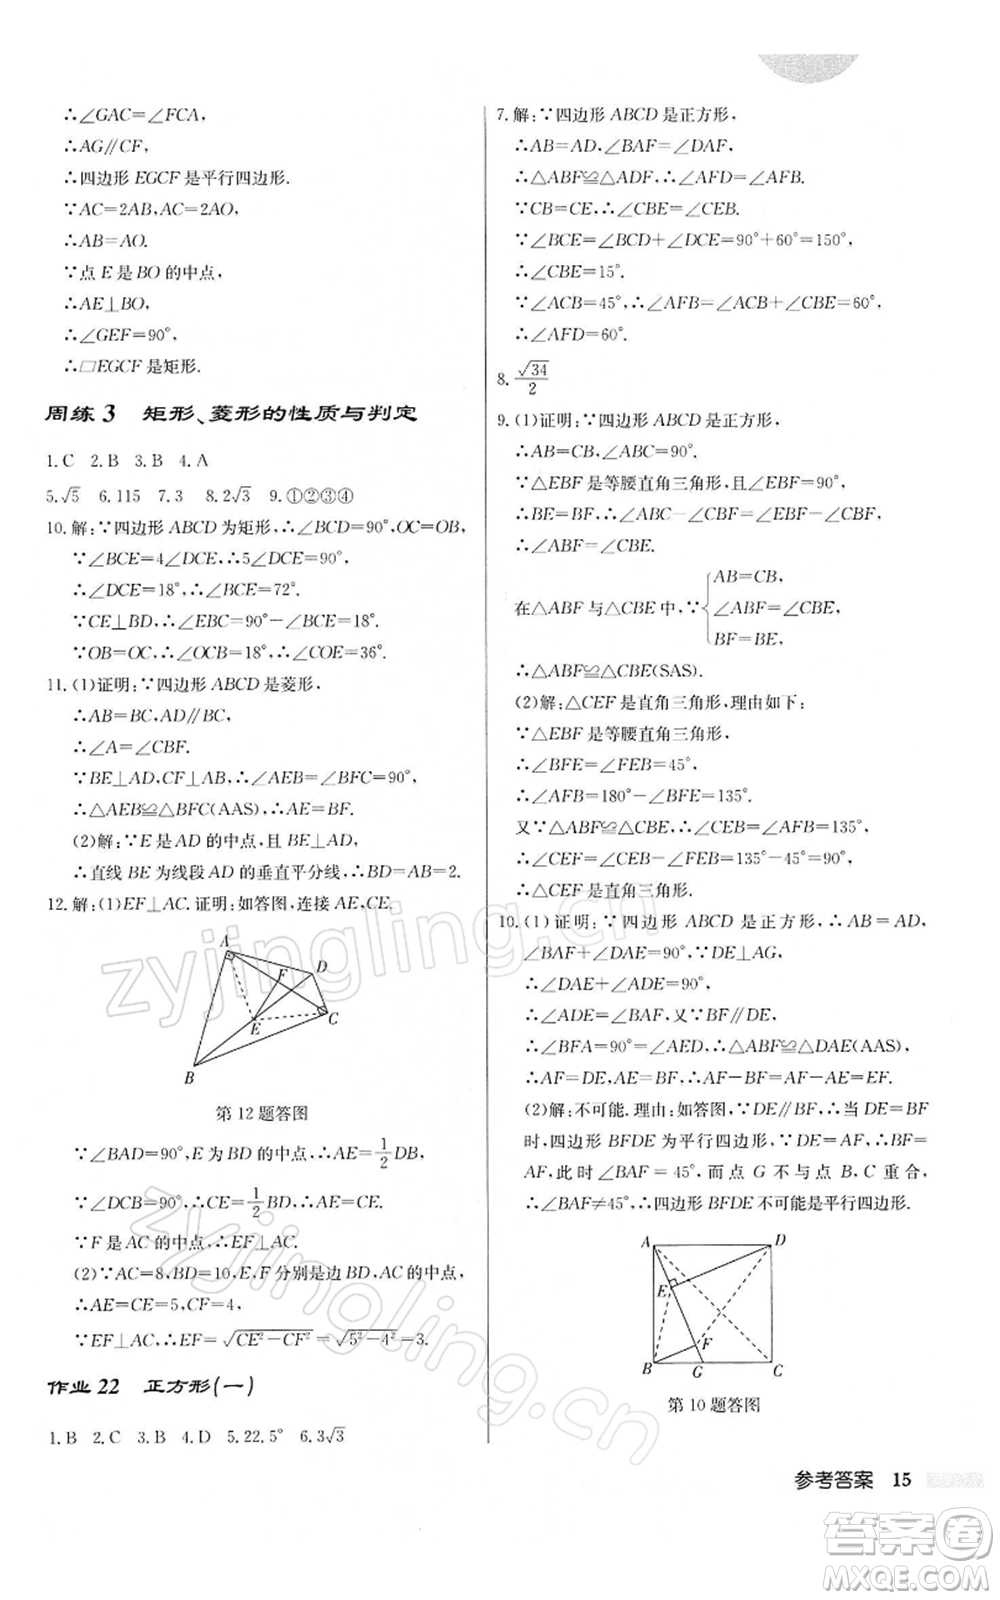 ∴∠GAC=∠FCA,
∴AG∥CF,
∴四边形 EGCF 是平行四边形.
∵AC=2AB,AC=2AO,
∴AB=AO.
∵点 E 是 BO 的中点,
∴AE⊥BO,
∴∠GEF=90°,
∴□EGCF 是矩形.
周练 3 矩形、菱形的性质与判定
1.C 2.B 3.B 4.A
5.√5 6.115 7.3 8.2√3 9.①②③④
10.解:∵四边形 ABCD 为矩形,∴∠BCD=90°,OC=OB,
∵∠BCE=4∠DCE,∴5∠DCE=90°,
∴∠DCE=18°,∴∠BCE=72°.
∵CE⊥BD,∴∠EBC=90°-∠BCE=18°.
∵OB=OC,∴∠OCB=18°,∴∠COE=36°.
11.(1)证明:∵四边形 ABCD 是菱形,
∴AB=BC,AD∥BC,
∴∠A=∠CBF.
∵BE⊥AD,CF⊥AB,∴∠AEB=∠BFC=90°,
∴△AEB≌△BFC(AAS),∴AE=BF.
(2)解:∵E 是 AD 的中点,且 BE⊥AD,
∴直线 BE 为线段 AD 的垂直平分线,∴BD=AB=2.
12.解:(1)EF⊥AC.证明:如答图,连接 AE,CE.
A
F
D
E
C
B
第 12 题答图
∵∠BAD=90°,E 为 BD 的中点,∴AE=1/2 DB,
∵∠DCB=90°,∴CE=1/2 BD,∴AE=CE.
∵F 是 AC 的中点,∴EF⊥AC.
(2)∵AC=8,BD=10,E,F 分别是边 BD,AC 的中点,
∴AE=CE=5,CF=4,
∵EF⊥AC,∴EF=√(CE²-CF²)=√(5²-4²)=3.
作业 22 正方形(一)
1.B 2.C 3.B 4.D 5.22.5° 6.3√3
7.解:∵四边形 ABCD 是正方形,
∴AB=AD,∠BAF=∠DAF,
∴△ABF≌△ADF,∴∠AFD=∠AFB.
∵CB=CE,∴∠CBE=∠CEB.
∵∠BCE=∠BCD+∠DCE=90°+60°=150°,
∴∠CBE=15°.
∵∠ACB=45°,∴∠AFB=∠ACB+∠CBE=60°,
∴∠AFD=60°.
8.√34/2
9.(1)证明:∵四边形 ABCD 是正方形,
∴AB=CB,∠ABC=90°.
∵△EBF 是等腰直角三角形,且∠EBF=90°,
∴BE=BF,∴∠ABC-∠CBF=∠EBF-∠CBF,
∴∠ABF=∠CBE.
在△ABF 与△CBE 中,∵{AB=CB,
∠ABF=∠CBE,
BF=BE,
∴△ABF≌△CBE(SAS).
(2)解:△CEF 是直角三角形,理由如下:
∵△EBF 是等腰直角三角形,
∴∠BFE=∠FEB=45°,
∴∠AFB=180°-∠BFE=135°.
又∵△ABF≌△CBE,∴∠CEB=∠AFB=135°,
∴∠CEF=∠CEB-∠FEB=135°-45°=90°,
∴△CEF 是直角三角形.
10.(1)证明:∵四边形 ABCD 是正方形,∴AB=AD,
∠BAF+∠DAE=∠BAD=90°.∵DE⊥AG,
∴∠DAE+∠ADE=90°,
∴∠ADE=∠BAF,又∵BF∥DE,
∴∠BFA=90°=∠AED,∴△ABF≌△DAE(AAS),
∴AF=DE,AE=BF,∴AF-BF=AF-AE=EF.
(2)解:不可能.理由:如答图,∵DE∥BF,∴当 DE=BF
时,四边形 BFDE 为平行四边形,∵AF=DE,∴BF=
AF,此时∠BAF=45°,而点 G 不与点 B,C 重合,
∴∠BAF≠45°,∴四边形 BFDE 不可能是平行四边形.
A
D
E
F
B
G
C
第 10 题答图
参考答案 15
zyjingling.cn
zyjingling.cn
答案卷
MXQE.COM